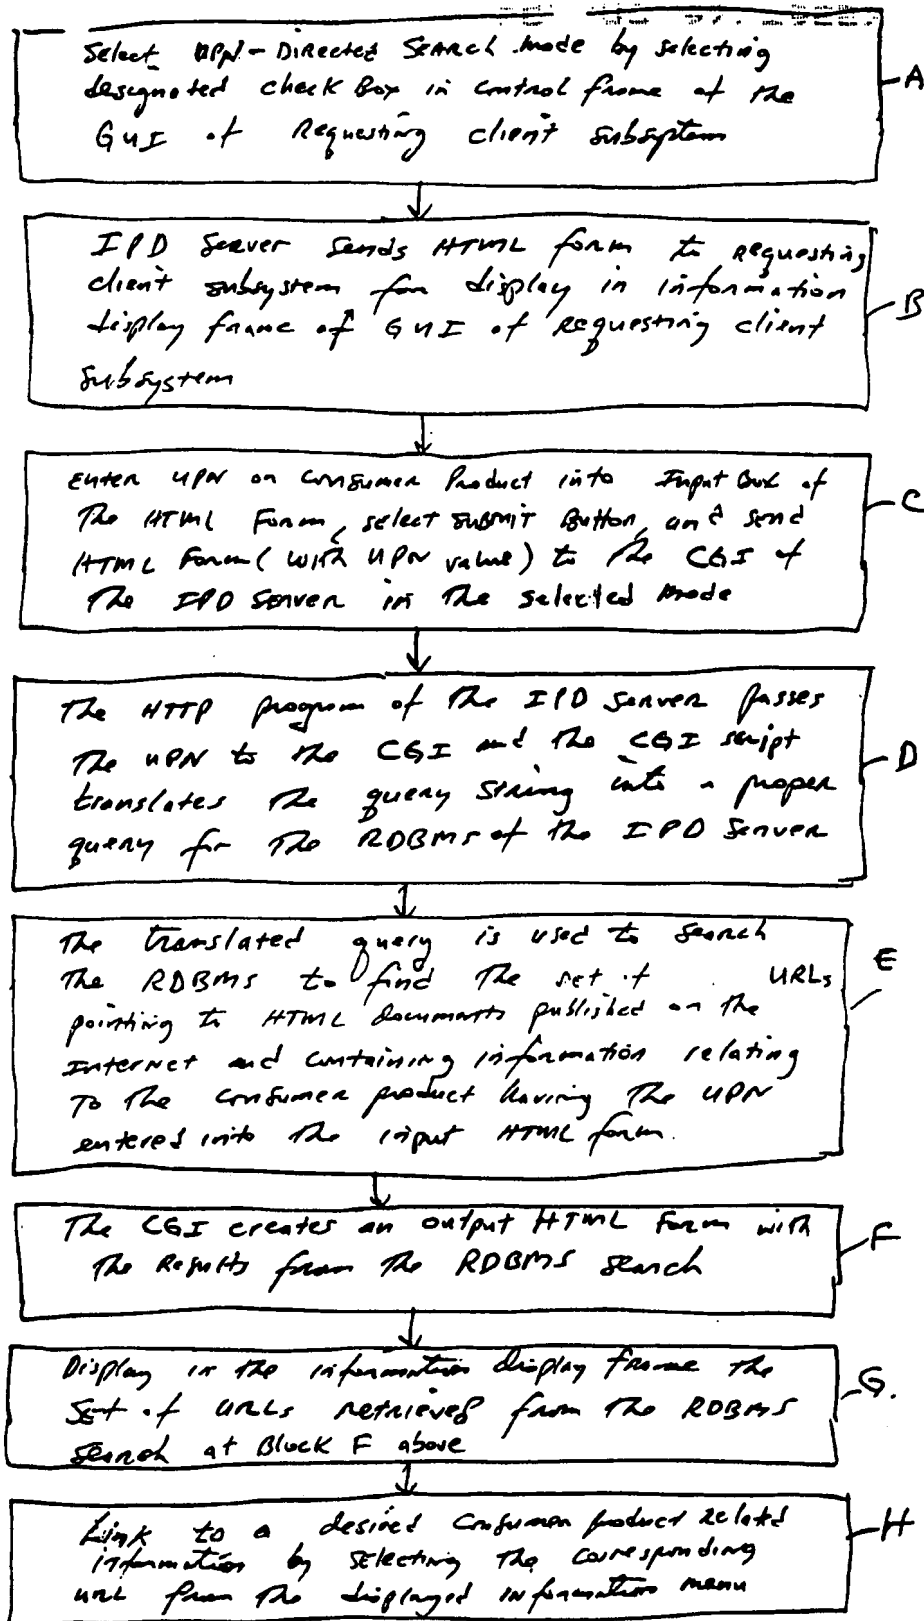 Select UPN-Directed Search mode by selecting
designated check Box in control frame of the
GUI of Requesting client subsystem
A
IPD Server sends HTML form to requesting
client subsystem for display in information
display frame of GUI of requesting client
subsystem
B
Enter UPN on Consumer Product into Input Box of
The HTML Form, select submit Button, and send
HTML Form (with UPN value) to the CGI of
The IPD Server in the selected mode
C
The HTTP program of the IPD Server passes
The UPN to the CGI and the CGI script
translates the query string into a proper
query for the RDBMS of the IPD Server
D
The translated query is used to search
the RDBMS to find the set of URLs
pointing to HTML documents published on the
Internet and containing information relating
To the consumer product having the UPN
entered into the input HTML form.
E
The CGI creates an output HTML Form with
the Results from the RDBMS search
F
Display in the information display frame the
Set of URLs retrieved from the RDBMS
search at Block F above
G.
Link to a desired Consumer product related
information by selecting the corresponding
URL from the displayed information menu
H